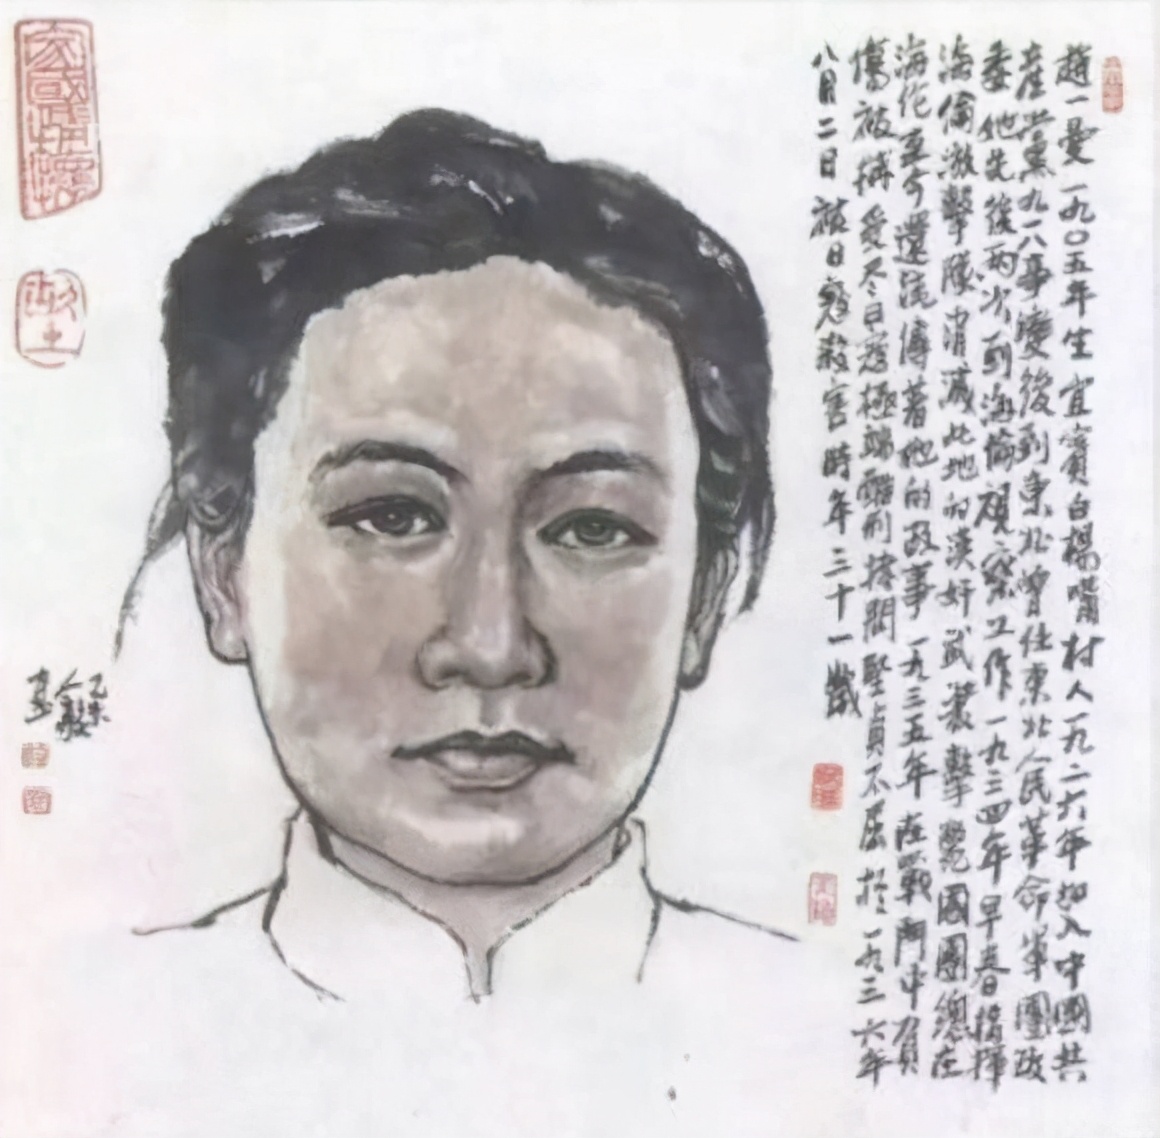 趙一曼一九〇五年生宜賓白楊嘴村人一九二六年加入中國共
產黨九一八事變後到東北曾任東北人民革命軍團政
委她先後兩次到海倫視察工作一九三四年早春指揮
海倫激擊隊消滅此地的漢奸武裝擊斃國團總在
海伦至今還流傳著她的故事一九三五年在戰鬥中負
傷被捕受尽日寇極端酷刑拷問堅貞不屈於一九三六年
八月二日被日寇殺害時年三十一歲
乙未